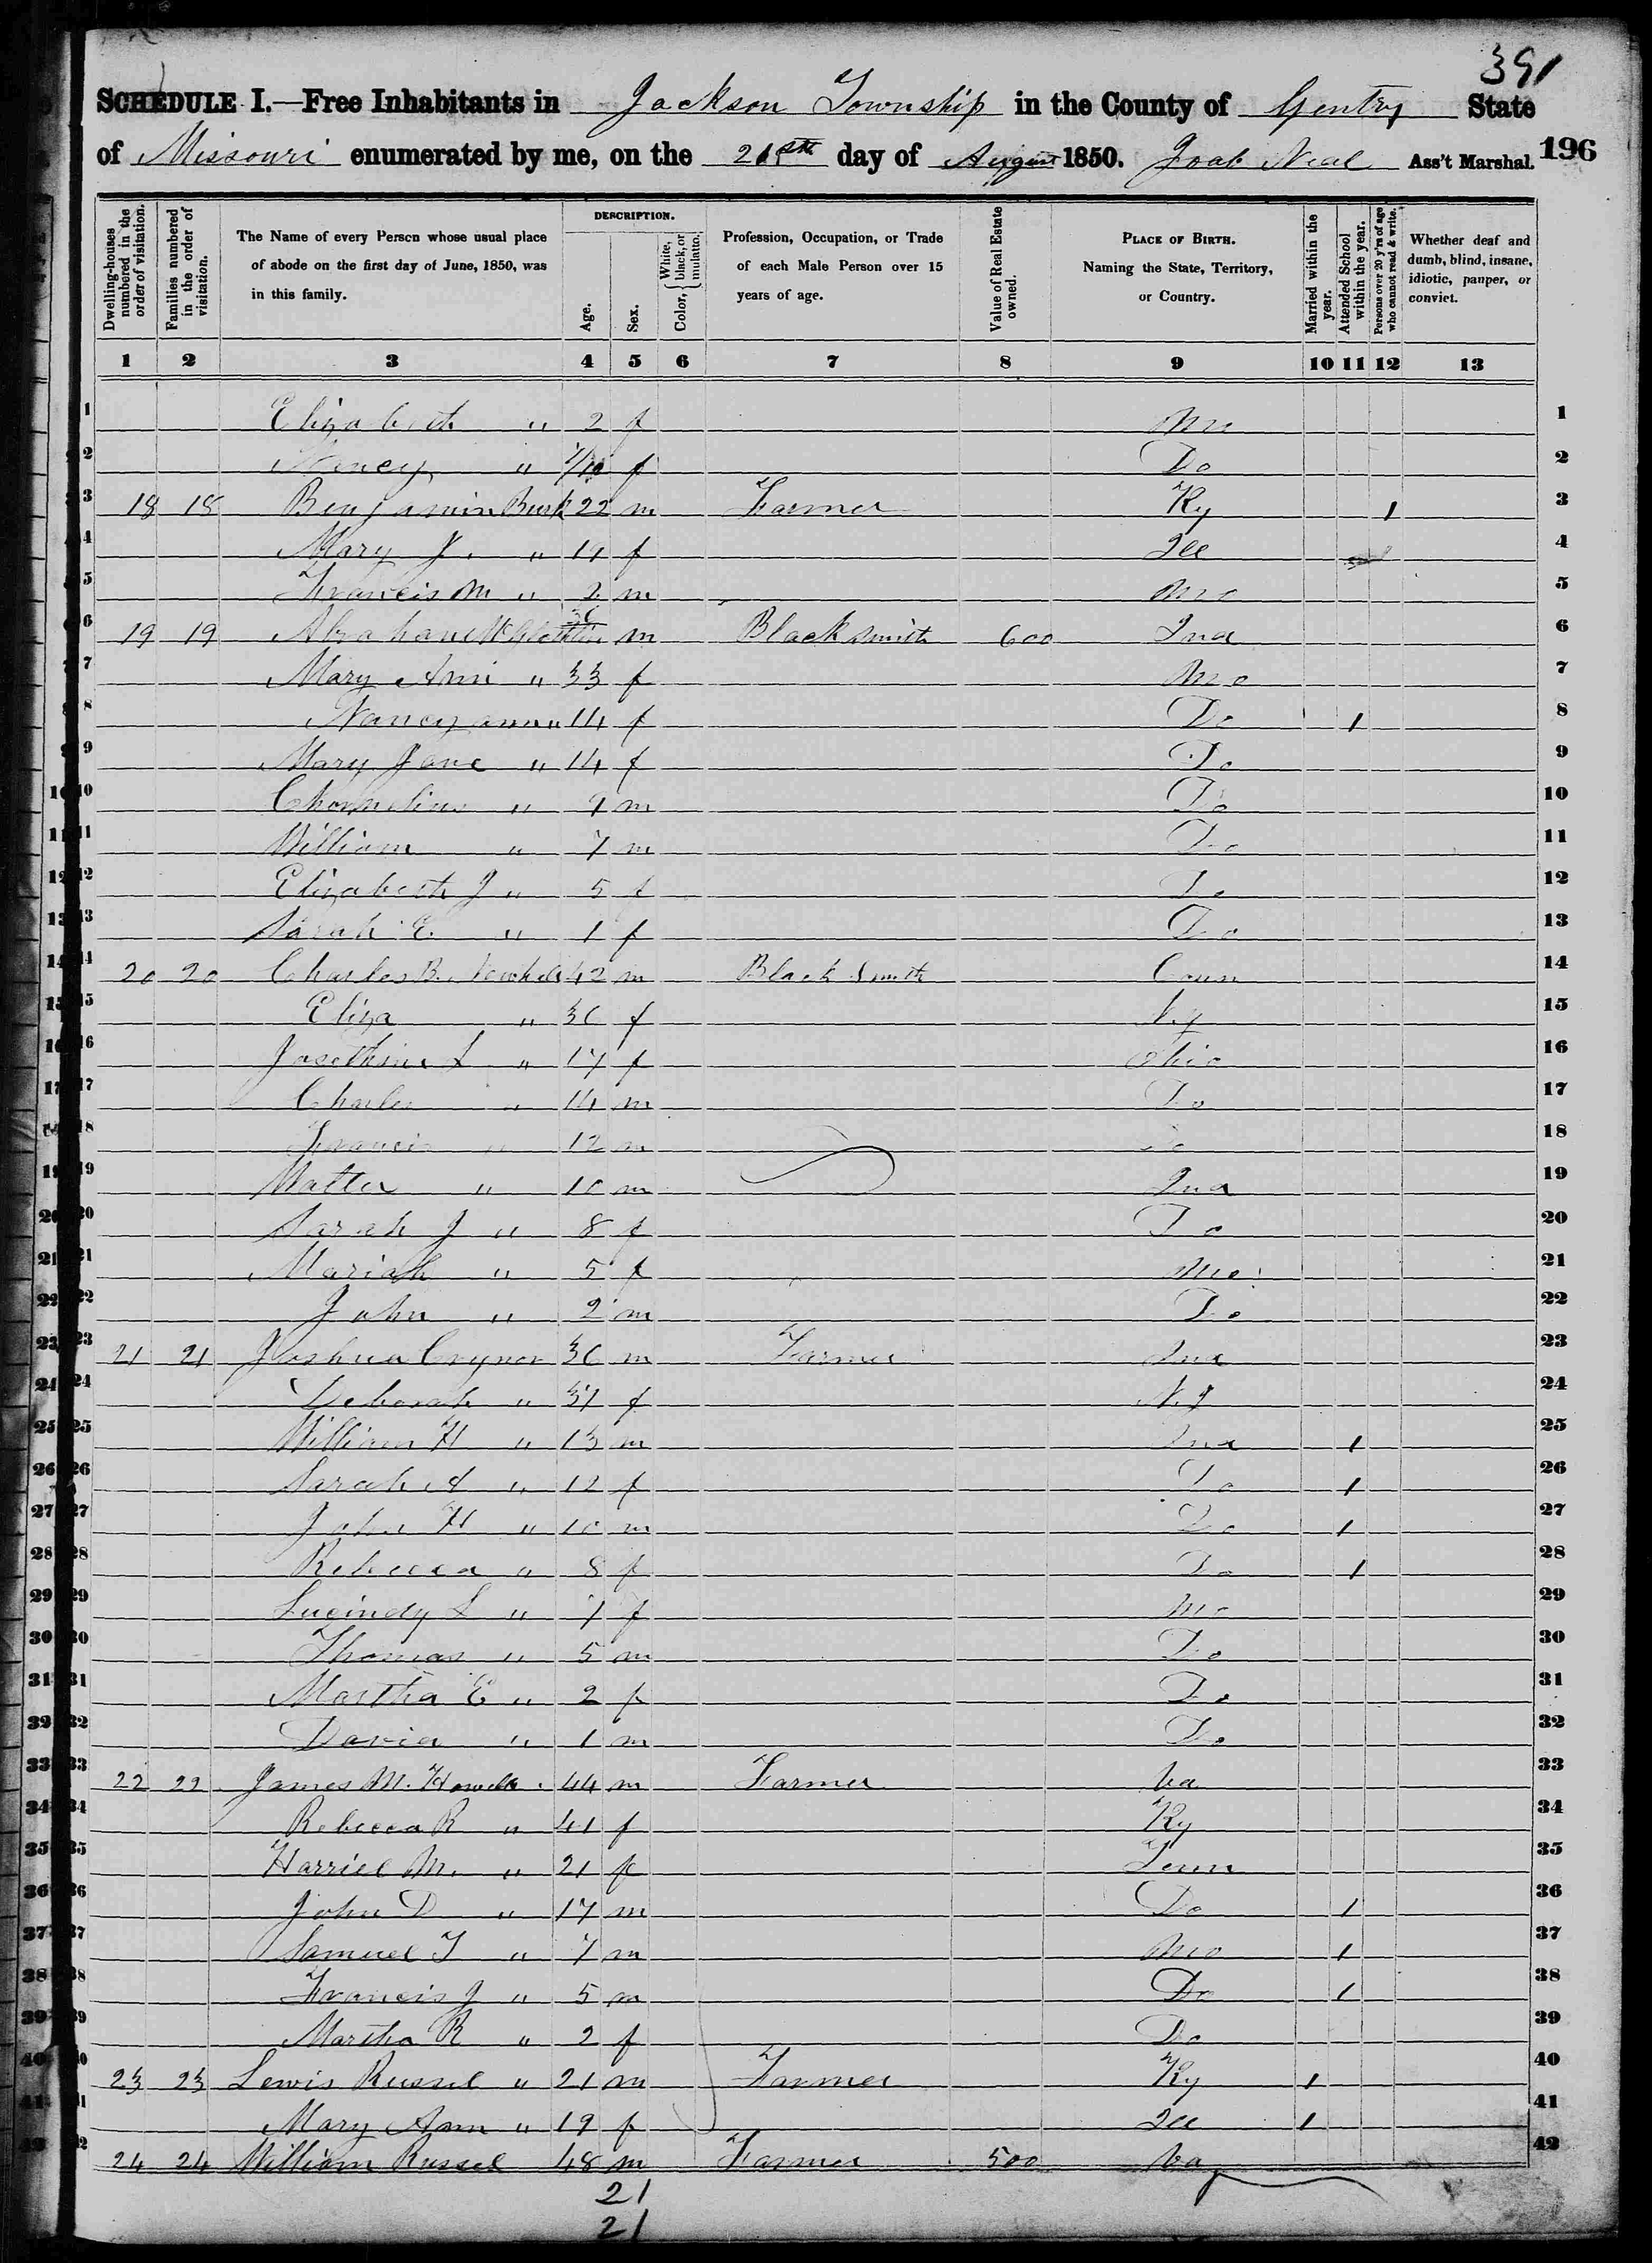 391
SCHEDULE I.—Free Inhabitants in Jackson Township in the County of Gentry State
of Missouri enumerated by me, on the 21st day of August 1850. Joab Neal Ass't Marshal. 196
Dwelling-houses numbered in the order of visitation.
Families numbered in the order of visitation.
The Name of every Person whose usual place of abode on the first day of June, 1850, was in this family.
DESCRIPTION.
Age.
Sex.
Color, White, black, or mulatto.
Profession, Occupation, or Trade of each Male Person over 15 years of age.
Value of Real Estate owned.
PLACE OF BIRTH. Naming the State, Territory, or Country.
Married within the year.
Attended School within the year.
Persons over 20 y'rs of age who cannot read & write.
Whether deaf and dumb, blind, insane, idiotic, pauper, or convict.
1 2 3 4 5 6 7 8 9 10 11 12 13
1 Elizabeth " 2 f Mo 1
2 Nancy " f Do 2
3 18 18 Benjamin Burk 22 m Farmer Ky 1 3
4 Mary J. " 19 f Ill 4
5 Francis M " 2 m Mo 5
6 19 19 Abraham 36 m Blacksmith 600 Ind 6
7 Mary Ann " 33 f Mo 7
8 Nancy ann " 14 f Do 1 8
9 Mary Jane " 14 f Do 9
10 Chornelius " 9 m Do 10
11 William " 7 m Do 11
12 Elizabeth J " 5 f Do 12
13 Sarah E. " 1 f Do 13
14 20 20 Charles B. 42 m Black Smith Conn 14
15 Eliza " 36 f N.Y 15
16 Josethine L " 17 f Ohio 16
17 Charles " 14 m Do 17
18 Francis " 12 m Do 18
19 Walter " 10 m Ind 19
20 Sarah J " 8 f Do 20
21 Mariah " 5 f Mo 21
22 John " 2 m Do 22
23 21 21 Joshua Crynor 36 m Farmer Ind 23
24 Deborah " 37 f N.J 24
25 William H " 13 m Ind 1 25
26 Sarah A " 12 f Do 1 26
27 John H " 10 m Do 1 27
28 Rebecca " 8 f Do 1 28
29 Lucindy L " 7 f Mo 29
30 Thomas " 5 m Do 30
31 Martha E " 2 f Do 31
32 David " 1 m Do 32
33 22 22 James M. Howell 44 m Farmer Va 33
34 Rebecca R " 41 f Ky 34
35 Harriel M. " 21 f Tenn 35
36 John D " 17 m Do 1 36
37 Samuel T " 7 m Mo 1 37
38 Francis J " 5 m Do 1 38
39 Martha R " 2 f Do 39
40 23 23 Lewis Russel " 21 m Farmer Ky 1 40
41 Mary Ann " 19 f Ill 1 41
42 24 24 William Russel 48 m Farmer 500 Va 42
21
21